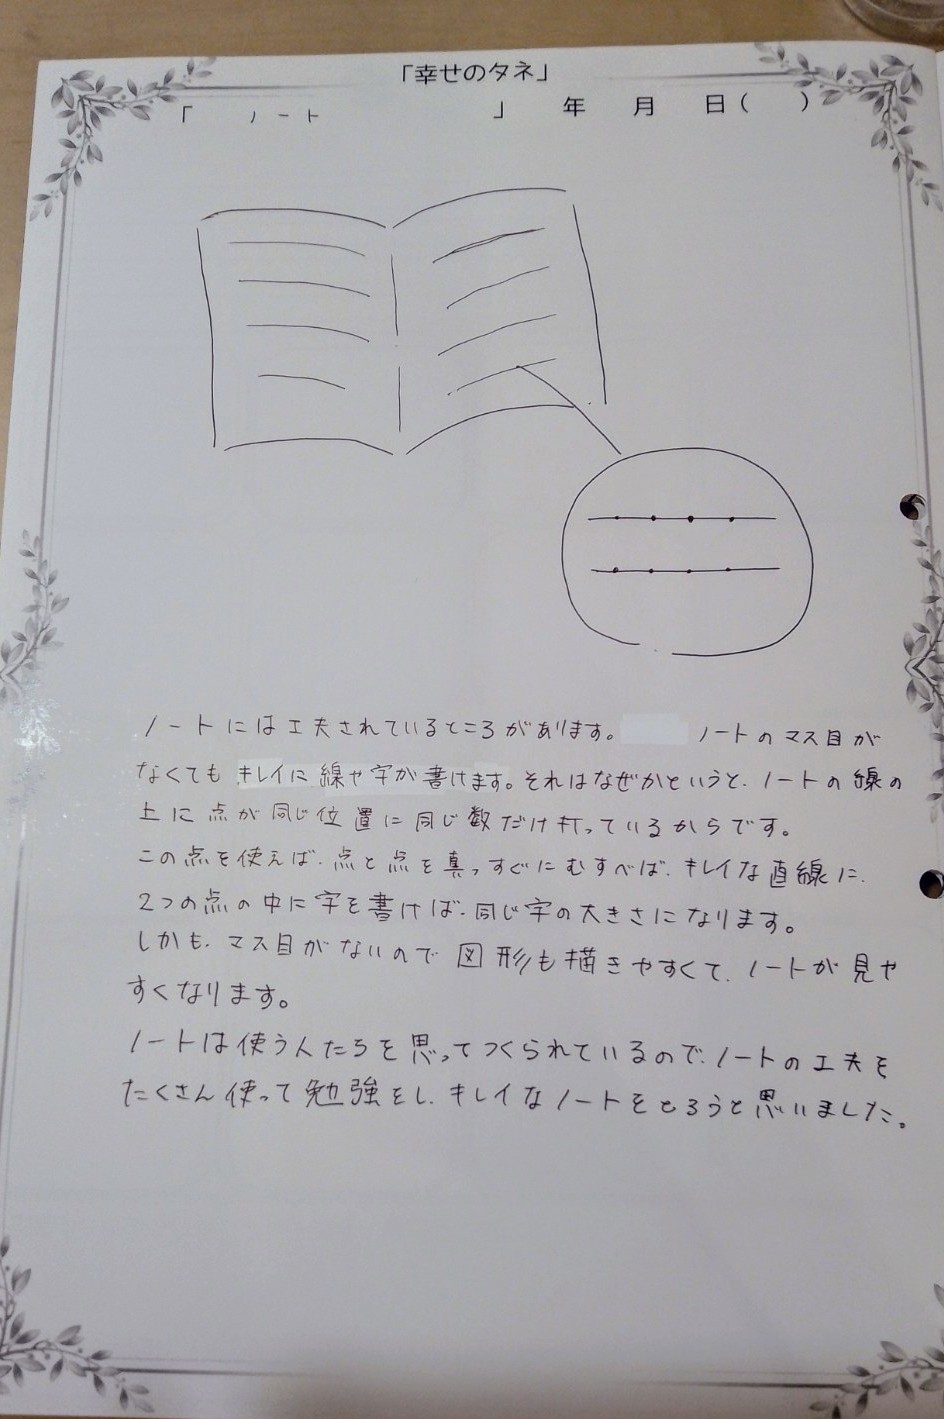 「幸せのタネ」
「 ノート 」 年 月 日( )
ノートには工夫されているところがあります。 ノートのマス目が
なくてもキレイに線や字が書けます。それはなぜかというと、ノートの線の
上に点が同じ位置に同じ数だけ打っているからです。
この点を使えば、点と点を真っすぐにむすべば、キレイな直線に、
2つの点の中に字を書けば、同じ字の大きさになります。
しかも、マス目がないので図形も描きやすくて、ノートが見や
すくなります。
ノートは使う人たちを思ってつくられているので、ノートの工夫を
たくさん使って勉強をし、キレイなノートをとろうと思いました。